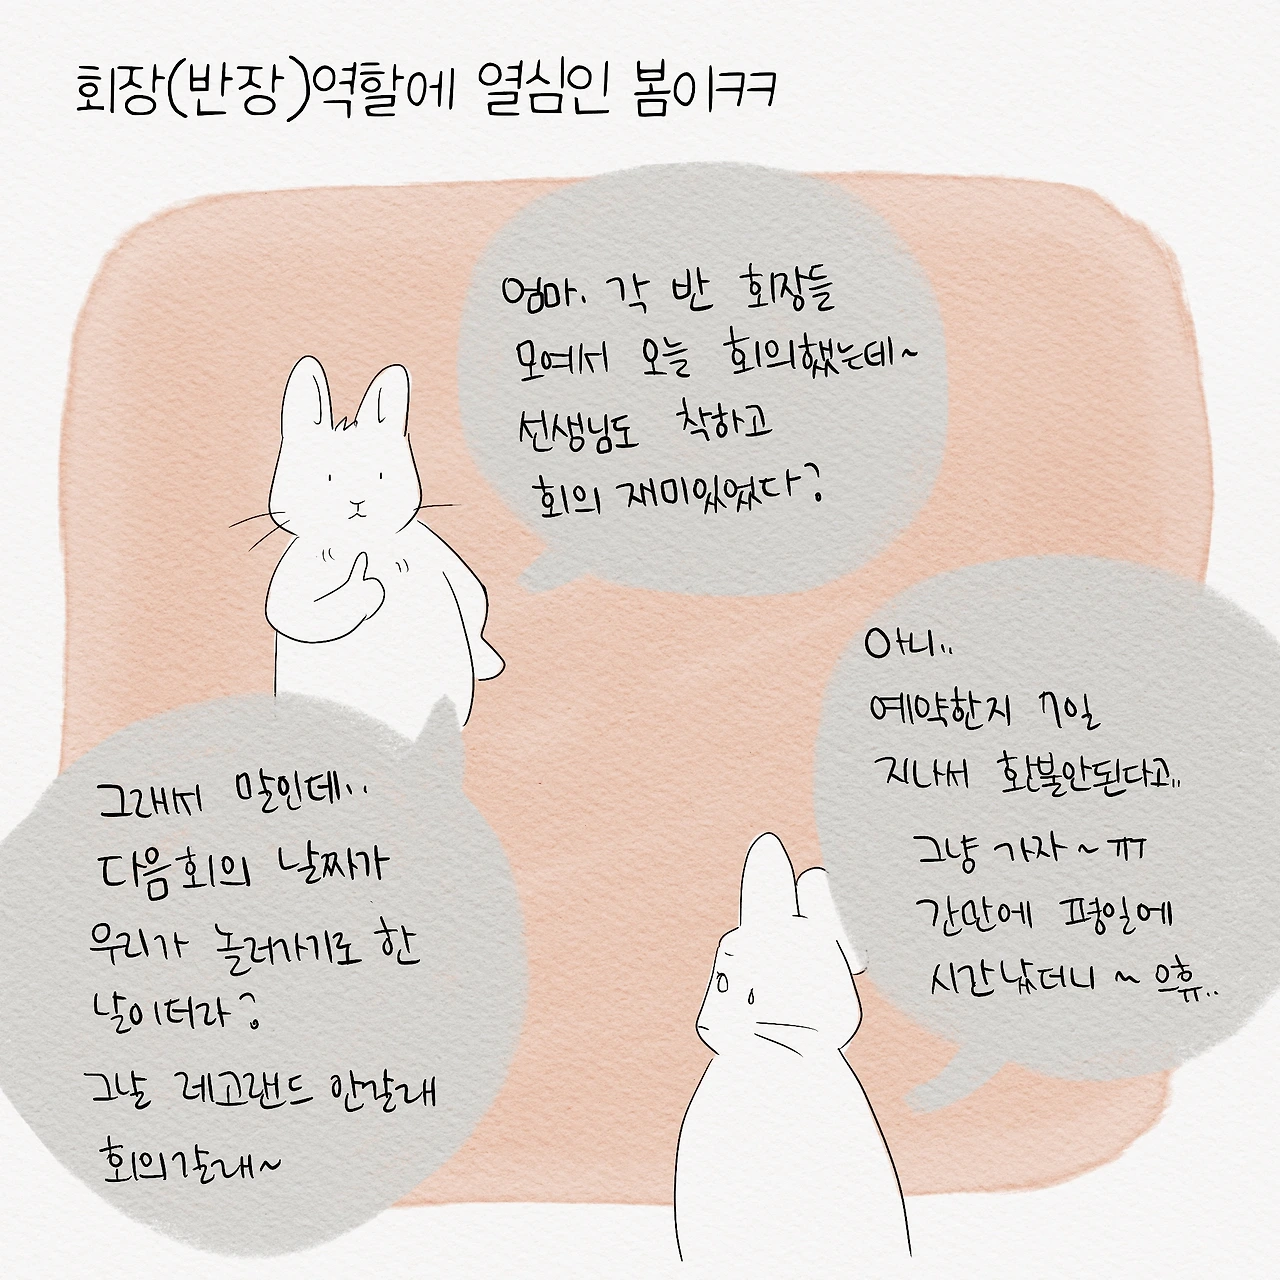 회장(반장)역할에 열심인 봄이ㅋㅋ
엄마. 각 반 회장들
모여서 오늘 회의했는데~
선생님도 착하고
회의 재미있었다?
그래서 말인데..
다음회의 날짜가
우리가 놀러가기로 한
날이더라?
그날 레고랜드 안갈래
회의갈래~
아니..
예약한지 7일
지나서 환불안된다고..
그냥 가자~ㅠㅠ
간만에 평일에
시간났더니~ 으휴..